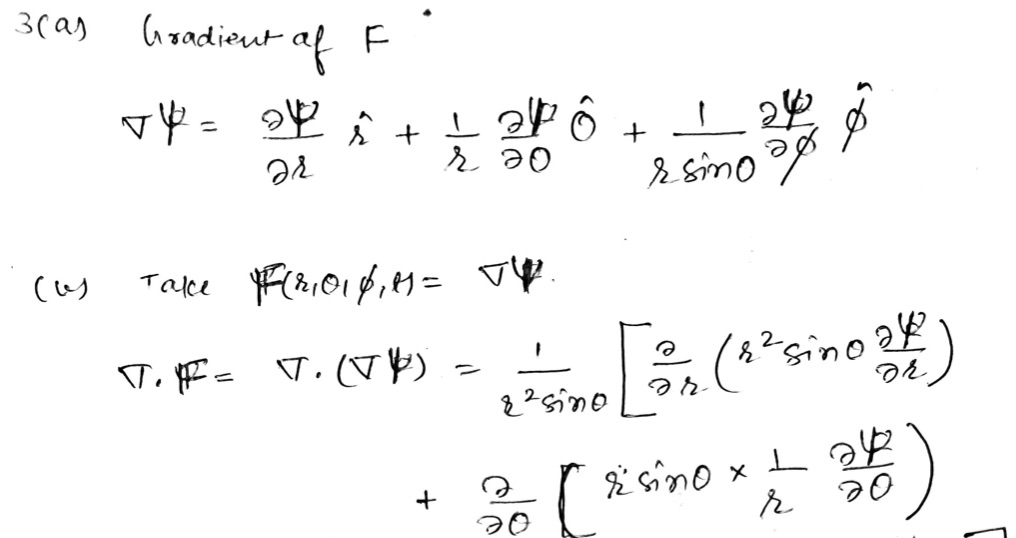 3(a) Gradient of F
∇ψ = ∂ψ/∂r r̂ + 1/r ∂ψ/∂θ θ̂ + 1/(r sinθ) ∂ψ/∂φ φ̂
(b) Take F(r,θ,φ,t) = ∇ψ.
∇.F = ∇.(∇ψ) = 1/(r² sinθ) [ ∂/∂r (r² sinθ ∂ψ/∂r)
+ ∂/∂θ [ r sinθ × 1/r ∂ψ/∂θ )